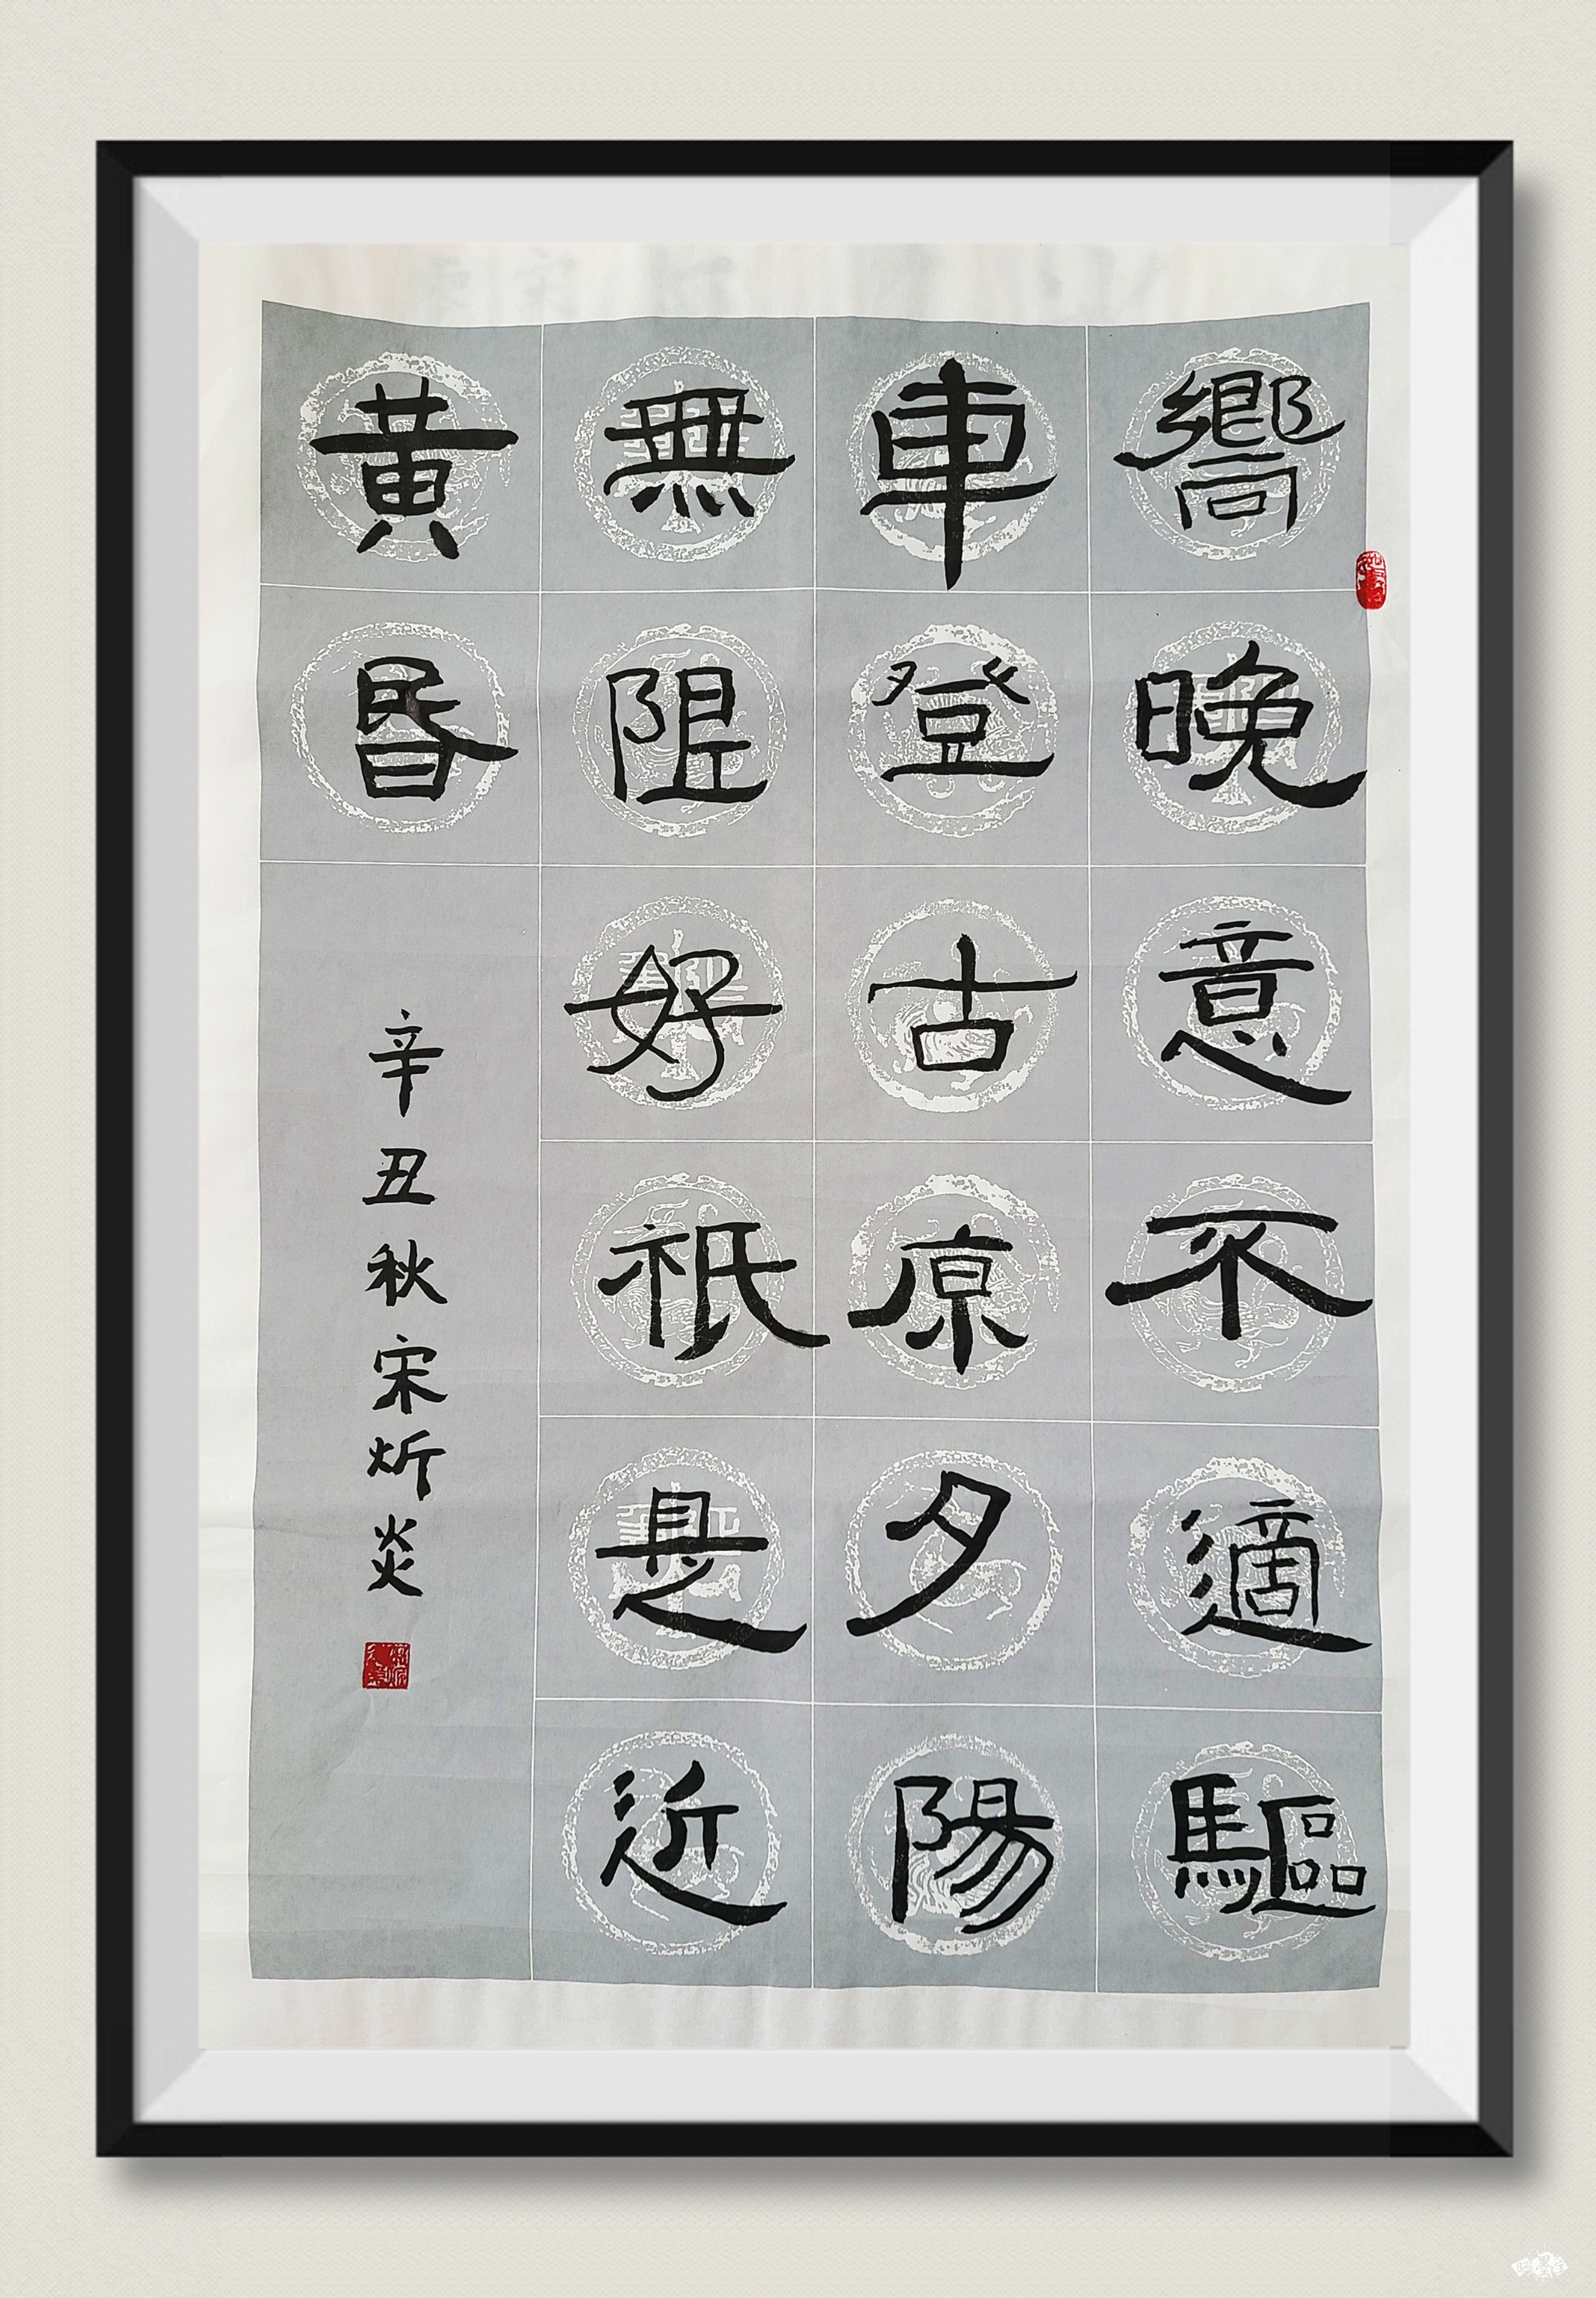 嚮晚意不適驅
車登古原夕陽
無限好祇是近
黄昬
辛丑秋宋炘炎